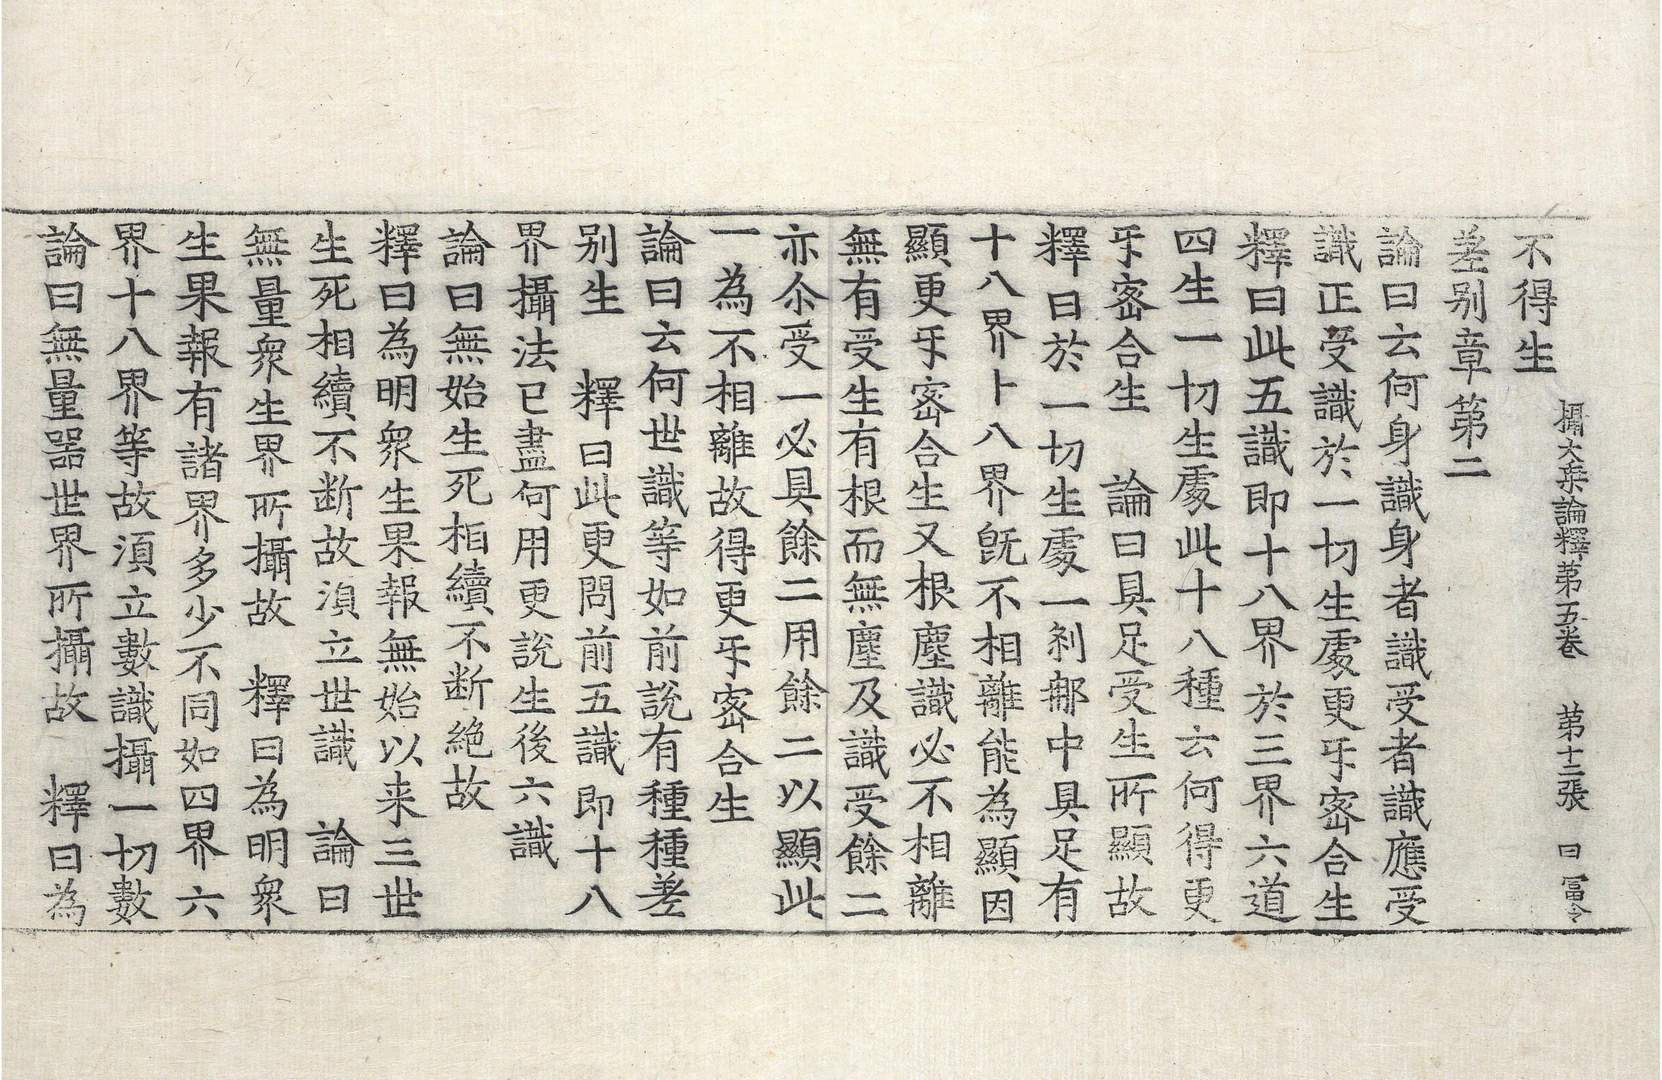 攝大乗論釋第五卷　第十二張　曰　冨令
不得生
差别章第二
論曰云何身識身者識受者識應受
識正受識於一切生䖏更㸦宻合生
釋曰此五識即十八界於三界六道
四生一切生䖏此十八種云何得更
㸦宻合生　論曰具足受生所顯故
釋曰於一切生䖏一刹㨙中具足有
十八界十八界既不相離能為顯因
顯更㸦宻合生又根塵識必不相離
無有受生有根而無塵及識受餘二
亦尒受一必具餘二用餘二以顯此
一為不相離故得更㸦宻合生
論曰云何世識等如前說有種種差
别生　釋曰此更問前五識即十八
界攝法已盡何用更說生後六識
論曰無始生死相續不断絶故
釋曰為明衆生果報無始以来三世
生死相續不断故湏立世識　論曰
無量衆生界所攝故　釋曰為明衆
生果報有諸界多少不同如四界六
界十八界等故湏立數識攝一切數
論曰無量器世界所攝故　釋曰為